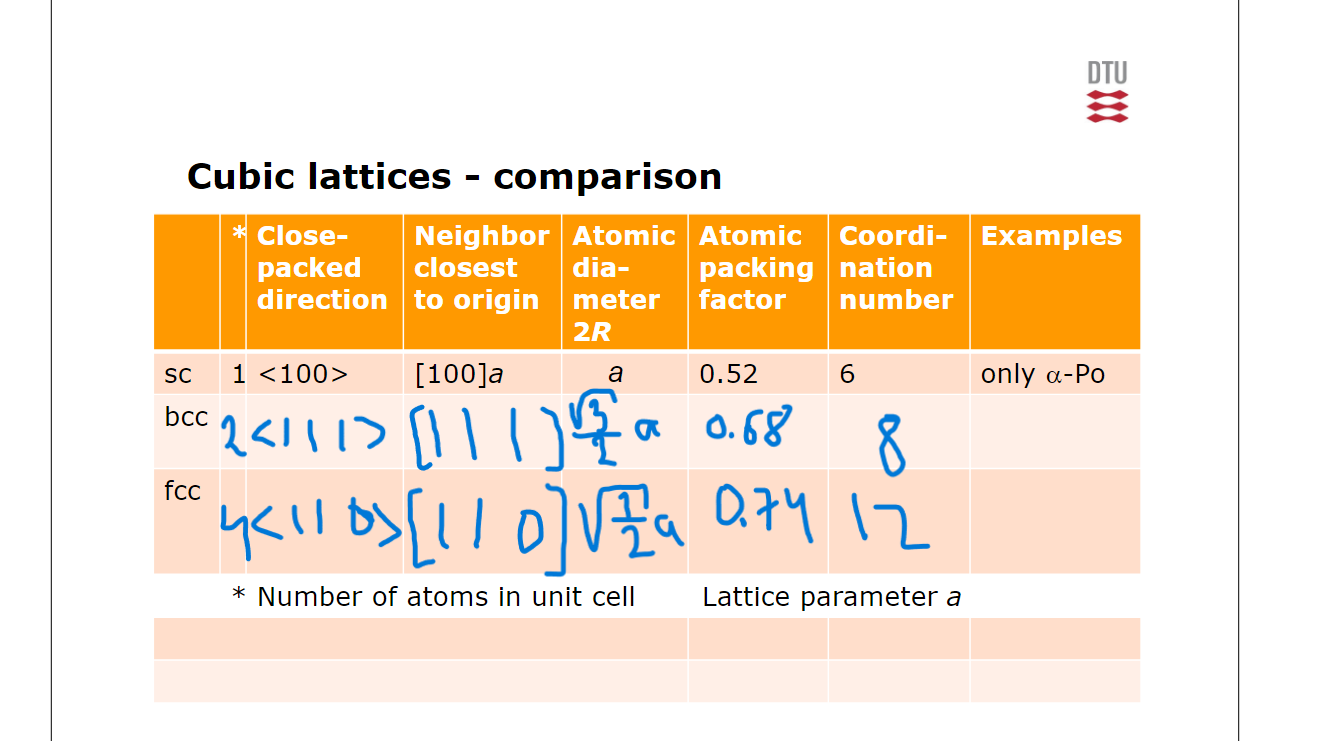 DTU
Cubic lattices - comparison
* Close-packed direction Neighbor closest to origin Atomic dia-meter 2R Atomic packing factor Coordi-nation number Examples
sc 1 <100> [100]a a 0.52 6 only α-Po
bcc 2 <111> [111] √3/2 a 0.68 8
fcc 4 <110> [110] √(1/2) a 0.74 12
* Number of atoms in unit cell Lattice parameter a